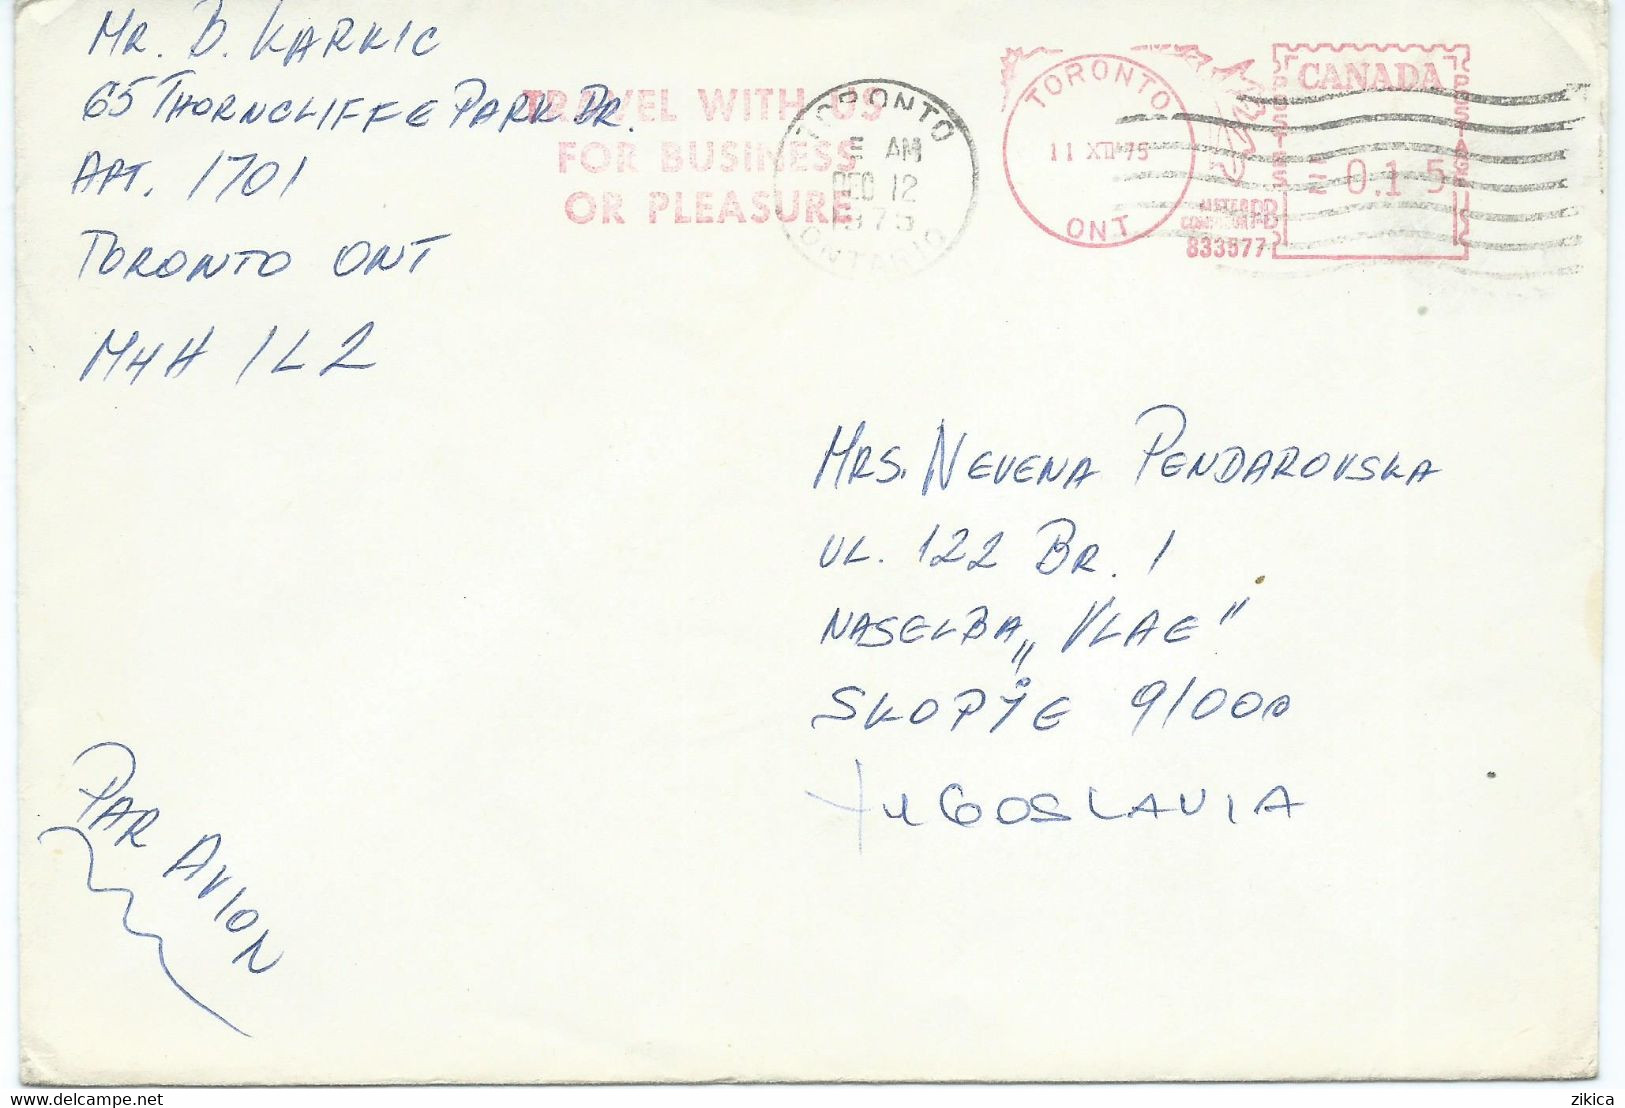 Mr. B. Karkic
65 Thorncliffe Park Dr.
Apt. 1701
Toronto Ont
M4H 1L2
TRAVEL WITH US
FOR BUSINESS
OR PLEASURE
TORONTO
AM
DEC 12
1975
ONTARIO
TORONTO
11 XII 75
ONT.
CANADA
POSTES
POSTAGE
0.15
METER
833577
Mrs. Nevena Pendarovska
ul. 122 Br. 1
Naselba „Vlae"
Skopje 91000
Yugoslavia
Par Avion
zikica